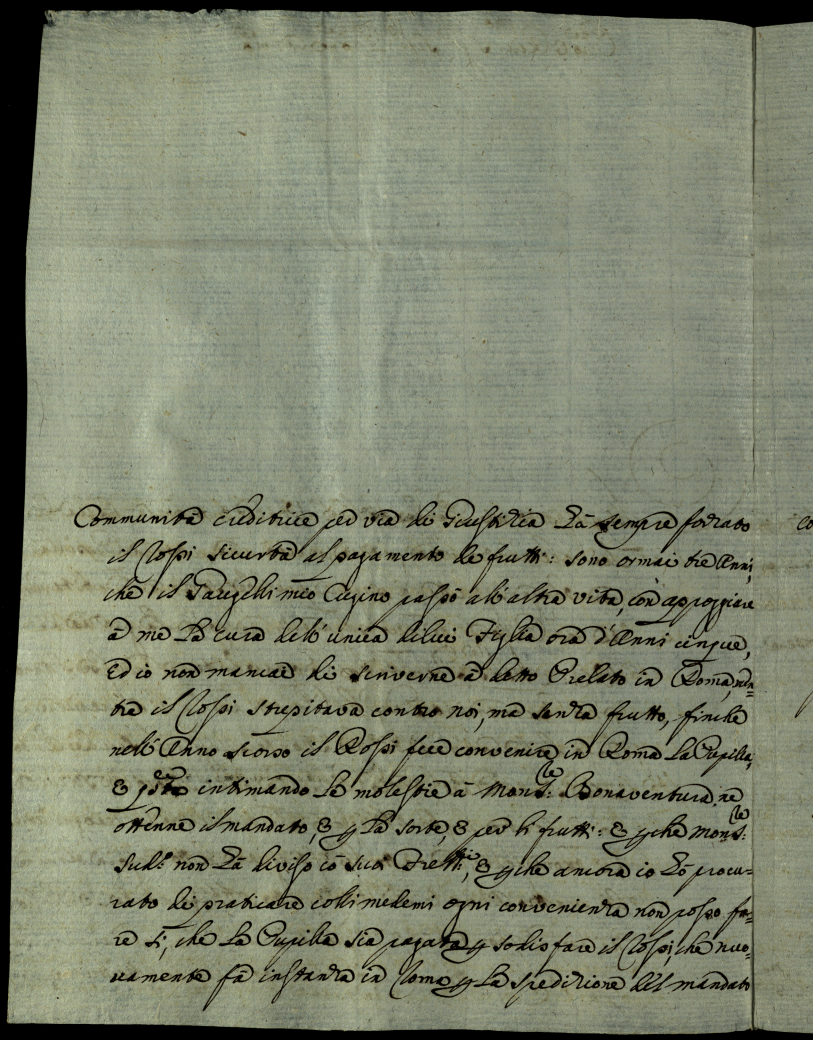 Communità creditrice per via di Giustizia hà sempre forzato
il Rossi sicurtà al pagamento de frutti: sono ormai tre Anni,
che il mio Cugino passò all'altra vita, con appoggiare
à me la cura dell'unica di lui Figlia ora d'Anni cinque,
Ed io non mancai di scriverne à detto Prelato in Roma, men=
tre il Rossi strepitava contro noi, mà senza frutto, finche
nell'Anno scorso il Rossi fece convenire in Roma La Pupilla,
& intimando le molestie à Mons.re Bonaventura, ne
ottenne il mandato, & p la sorte, & per li frutti: & p che Mons.re
Sud.o non hà diviso cò suoi Fretlli, & p che ancora io hò procu=
rato di praticare colli medemi ogni convenienza non posso fa=
re sì, che La Pupilla sia pagata p sodisfare il Rossi, che nuo=
vamente fà instanza in Roma p la spedizione del mandato